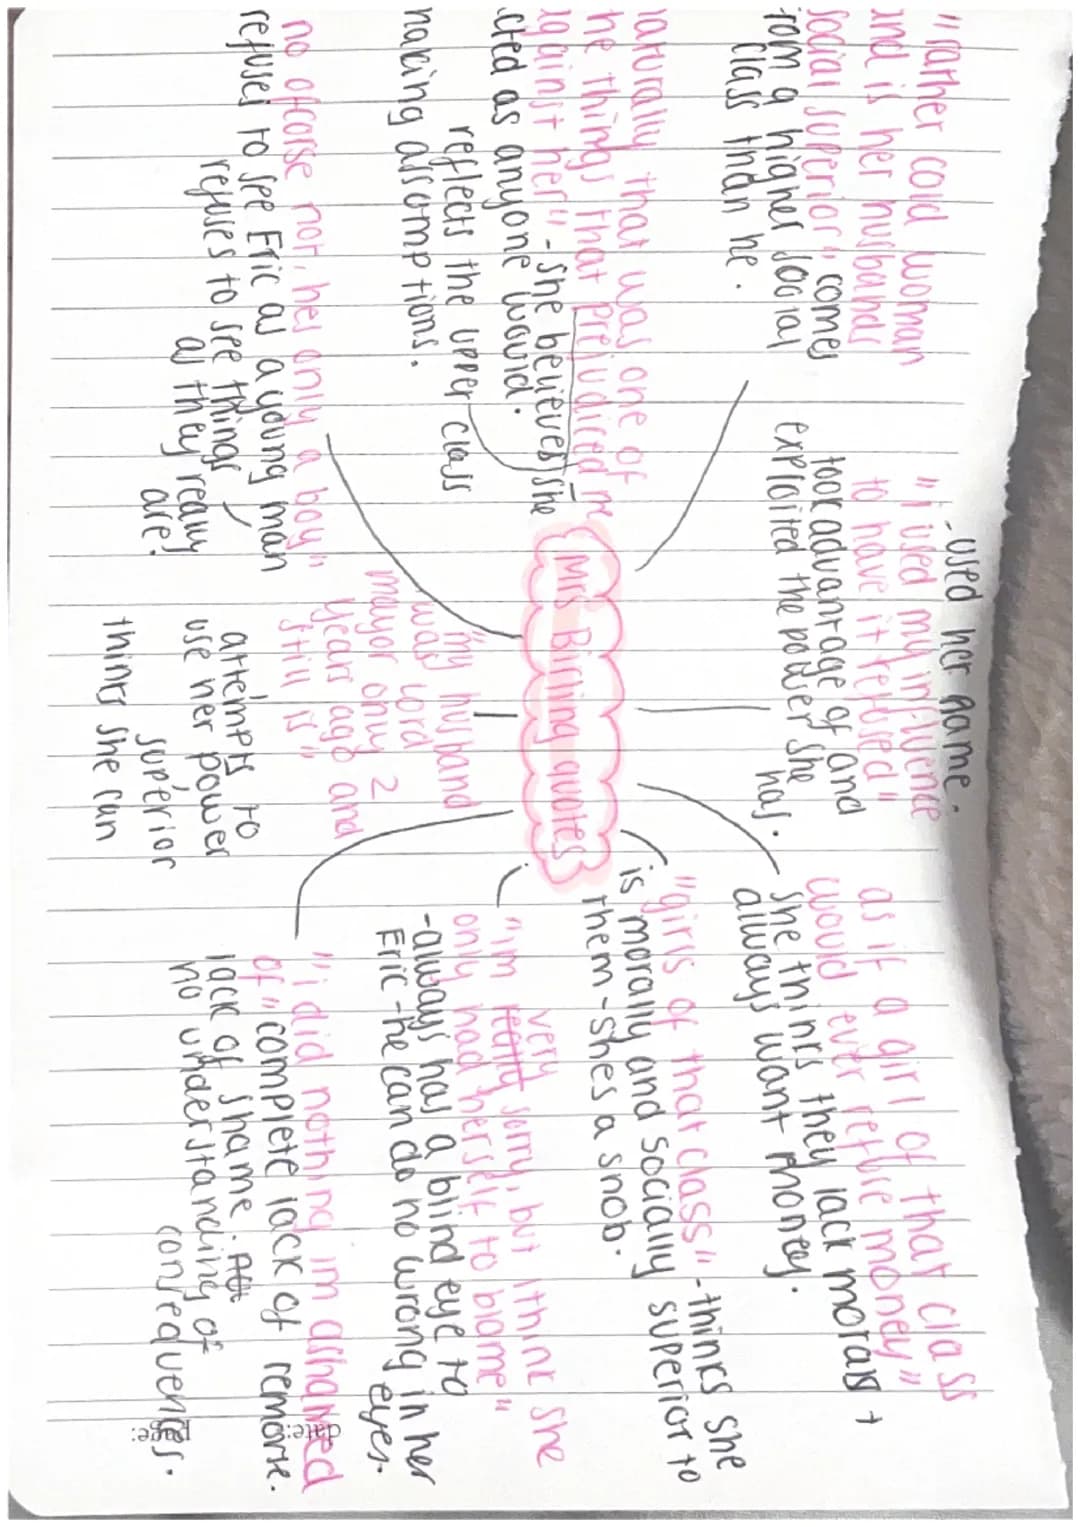 "rather cold woman
and is her husbands
social superior", comes
from a higher social
class than he.
-used her name.
"i used my influence
to have it refused"
took advantage of and
exploited the power she
has.
as if a girl of that class
would ever refuse money"
she thinks they lack morals +
always want money.
naturally that was one of
the things that prejudiced me
against her" -she believes she
acted as anyone would.
reflects the upper class
making assumptions.
Mrs Birling quotes
"girls of that class" -thinks she
is morally and socially superior to
them -shes a snob.
"im really very sorry, but i think she
only had herself to blame"
-always has a blind eye to
Eric -he can do no wrong in her
eyes.
no ofcorse not, hes only a boy"
refuses to see Eric as a young man
refuses to see things
as they really
are.
"my husband
was lord
mayor only 2
years ago and
still is"
attempts to
use her power
superior
thinks she can
"i did nothing im ashamed
of" complete lack of remorse.
lack of shame
no understanding of
consequences.
date:
page: